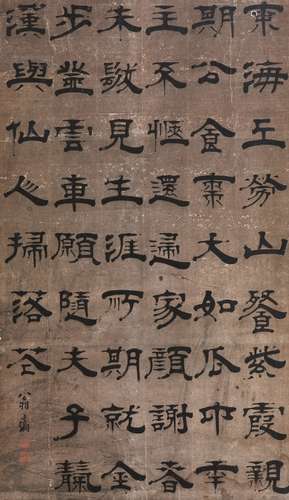 東海上勞山餐紫霞親
期公食棗大如瓜中年
主不愜還歸家顏謝春
髮見生涯所期就金
步登雲車願隨夫子
與仙人掃落花
翁